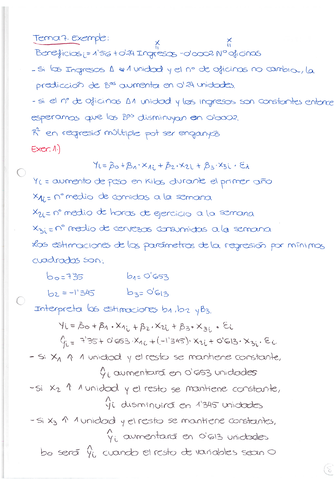 Tema 7. Exemple:
x₁ x₂
Beneficiosᵢ = 1'56 + 0'24 Ingresos - 0'0002 Nº oficinas
- si los Ingresos Δ 1 unidad y el nº de oficinas no cambia, la
prediccion de Bºs aumenta en 0'24 unidades
- si el nº de oficinas Δ 1 unidad y los ingresos son constantes entonces
esperamos que los Bºs disminuyan en 0'0002.
R² en regresió múltiple pot ser enganyós
Exer. 1)
Yᵢ = β₀ + β₁ · X₁ᵢ + β₂ · X₂ᵢ + β₃ · X₃ᵢ · Ɛᵢ
Yᵢ = aumento de peso en Kilos durante el primer año
X₁ᵢ = nº medio de comidas a la semana
X₂ᵢ = nº medio de horas de ejercicio a la semana
X₃ᵢ = nº medio de cervezas consumidas a la semana
Las estimaciones de los parámetros de la regresión por mínimos
cuadrados son:
b₀ = 7'35 b₁ = 0'653
b₂ = -1'345 b₃ = 0'613
Interpreta las estimaciones b₁, b₂ y β₃.
Yᵢ = β₀ + β₁ · X₁ᵢ + β₂ · X₂ᵢ + β₃ · X₃ᵢ · Ɛᵢ
Ŷᵢ = 7'35 + 0'653 · X₁ᵢ + (-1'345) · X₂ᵢ + 0'613 · X₃ᵢ · Ɛᵢ
- si X₁ ↑ 1 unidad y el resto se mantiene constante,
ŷᵢ aumentará en 0'653 unidades
- si X₂ ↑ 1 unidad y el resto se mantiene constante,
ŷᵢ disminuirá en 1'345 unidades
- si X₃ ↑ 1 unidad y el resto se mantiene constantes,
ŷᵢ aumentará en 0'613 unidades
b₀ será ŷᵢ cuando el resto de variables sean 0